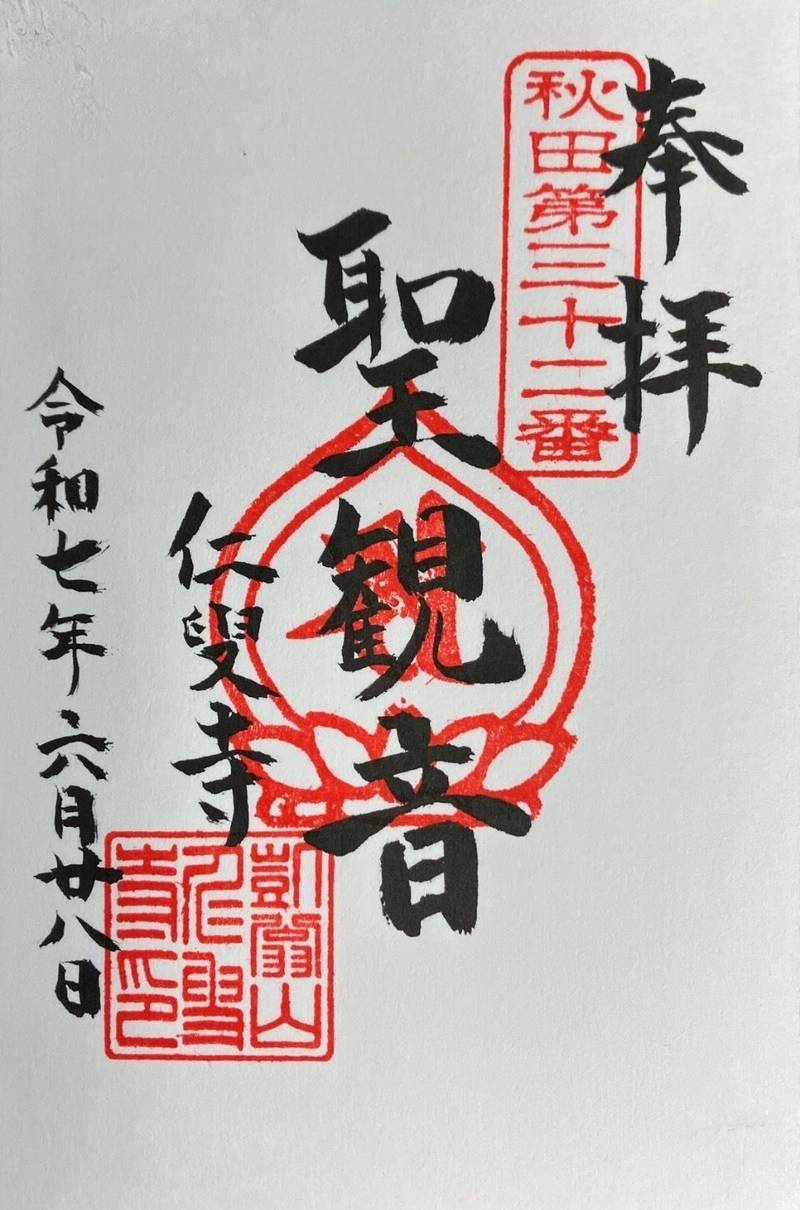 奉拝
秋田第三十二番
聖観音
仁叟寺
令和七年六月廿八日
仁叟
寺印